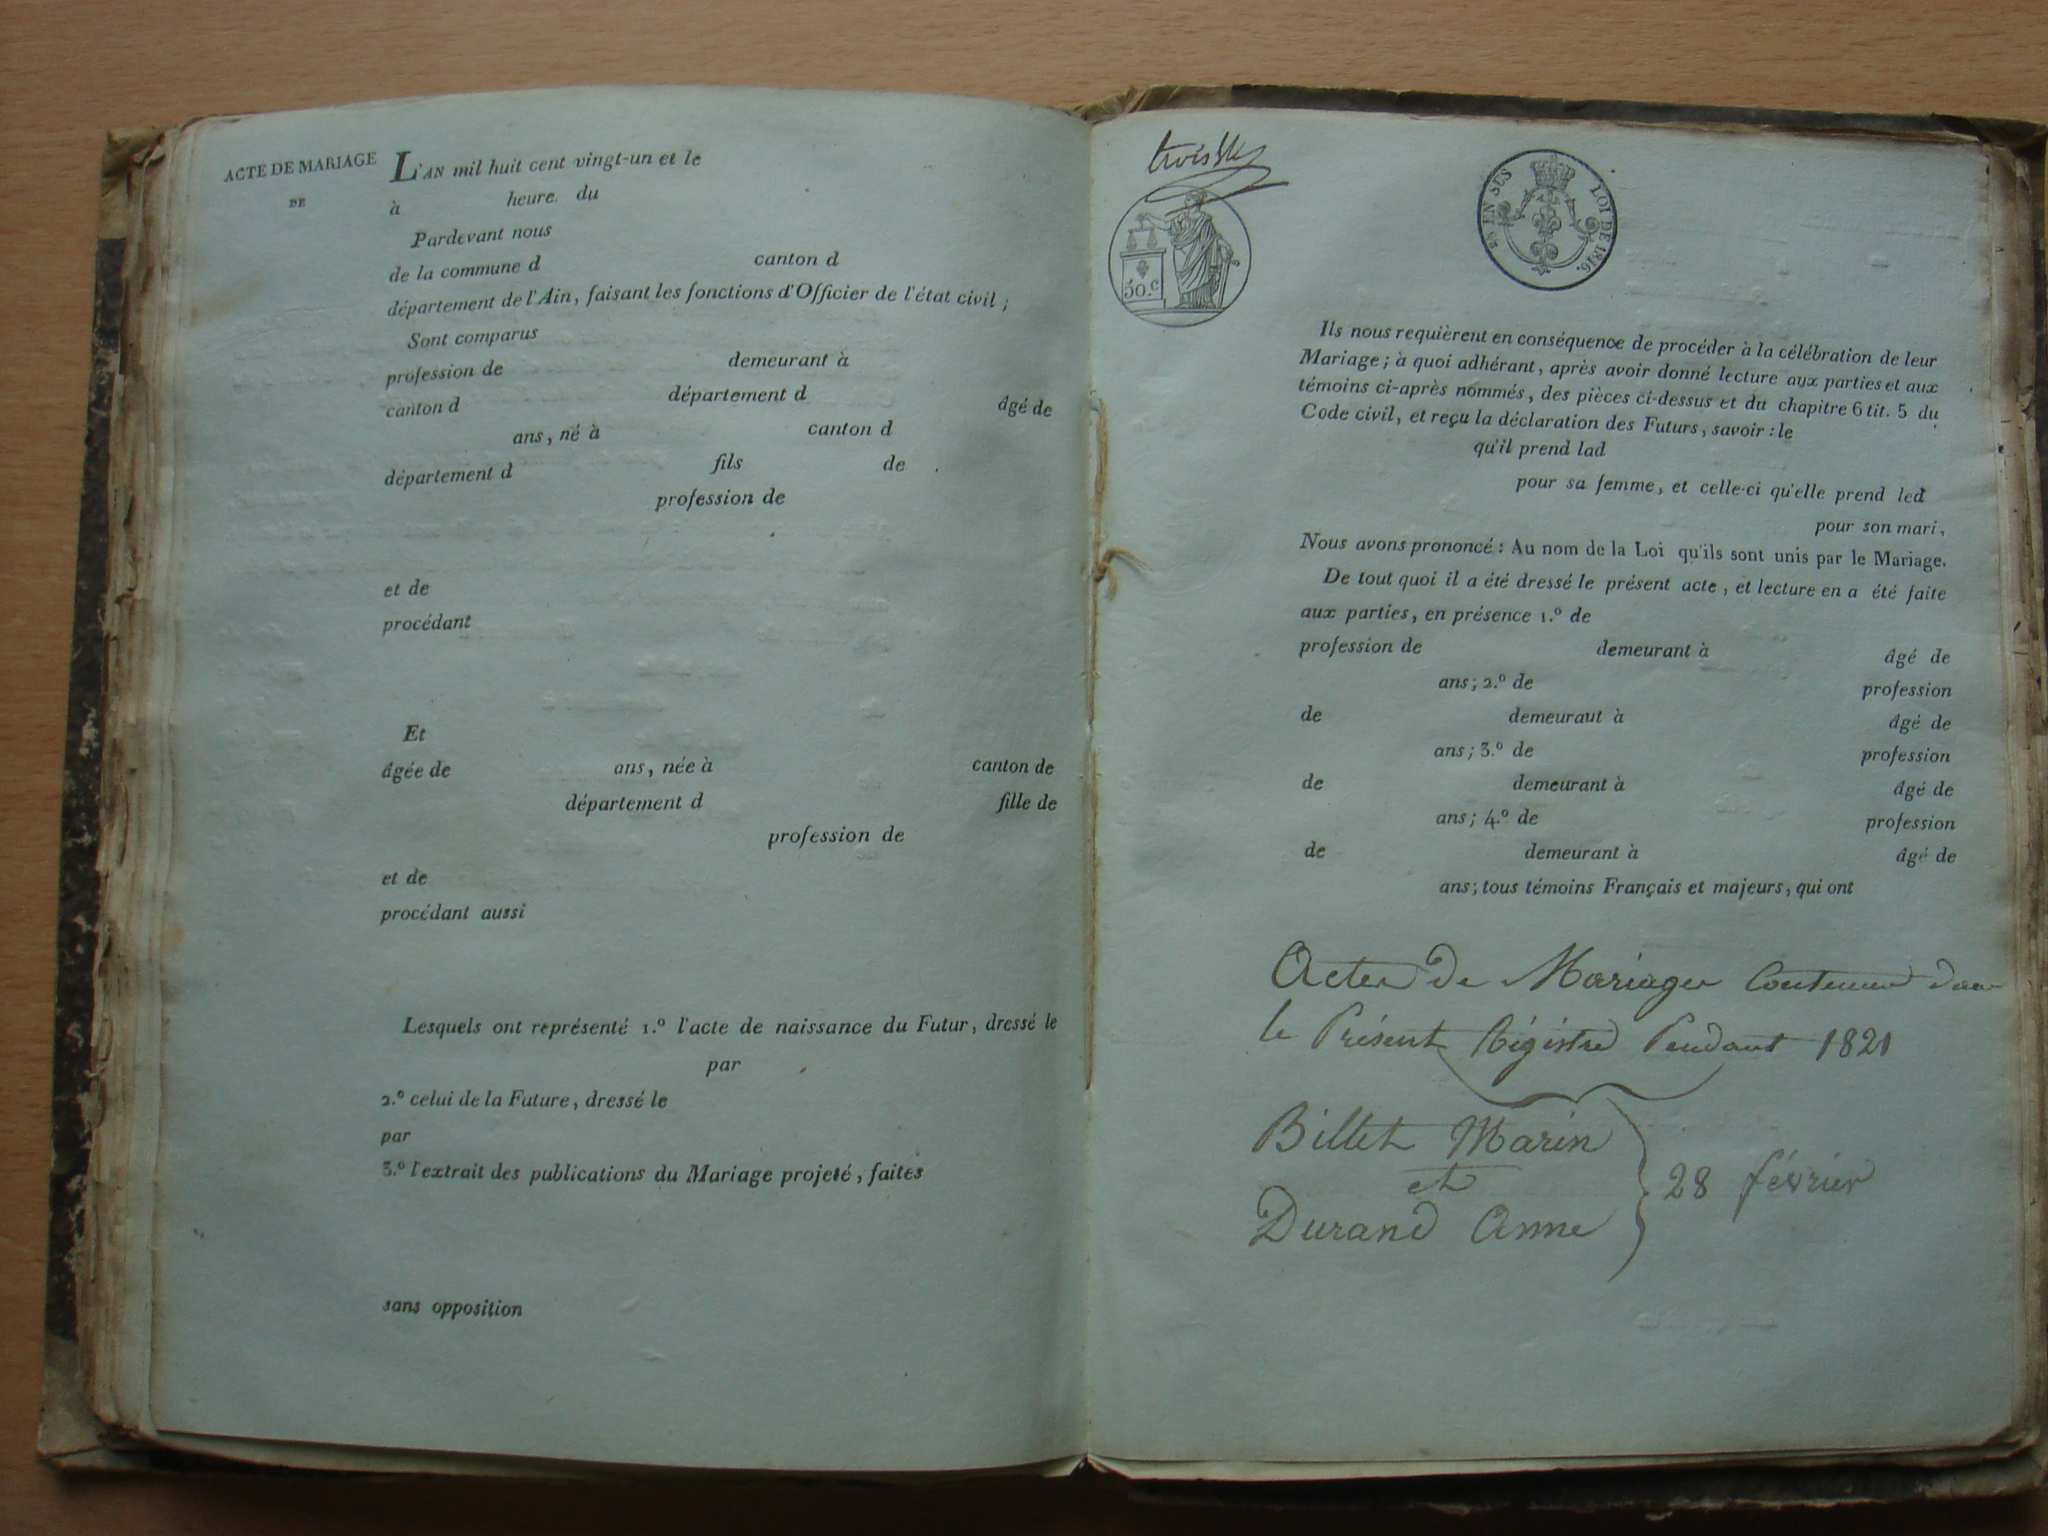 ACTE DE MARIAGE
DE
L'AN mil huit cent vingt-un et le
à heure du
Pardevant nous
de la commune d canton d
département de l'Ain, faisant les fonctions d'Officier de l'état civil ;
Sont comparus
profession de demeurant à
canton d département d âgé de
ans, né à canton d
département d fils de
profession de
et de
procédant
Et
âgée de ans, née à canton de
département d fille de
profession de
et de
procédant aussi
Lesquels ont représenté 1.º l'acte de naissance du Futur, dressé le
par
2.º celui de la Future, dressé le
par
3.º l'extrait des publications du Mariage projeté, faites
sans opposition
50.c
EN SUS LOI DE 1816.
Ils nous requièrent en conséquence de procéder à la célébration de leur
Mariage ; à quoi adhérant, après avoir donné lecture aux parties et aux
témoins ci-après nommés, des pièces ci-dessus et du chapitre 6 tit. 5 du
Code civil, et reçu la déclaration des Futurs, savoir : le
qu'il prend lad
pour sa femme, et celle-ci qu'elle prend led
pour son mari,
Nous avons prononcé : Au nom de la Loi qu'ils sont unis par le Mariage.
De tout quoi il a été dressé le présent acte, et lecture en a été faite
aux parties, en présence 1.º de
profession de demeurant à âgé de
ans ; 2.º de profession
de demeuraut à âgé de
ans ; 3.º de profession
de demeurant à âgé de
ans ; 4.º de profession
de demeurant à âgé de
ans ; tous témoins Français et majeurs, qui ont
Actes de Mariages Contenus dans
le Présent Régistre Pendant 1821
Billet Marin
et
Durand Anne
28 février